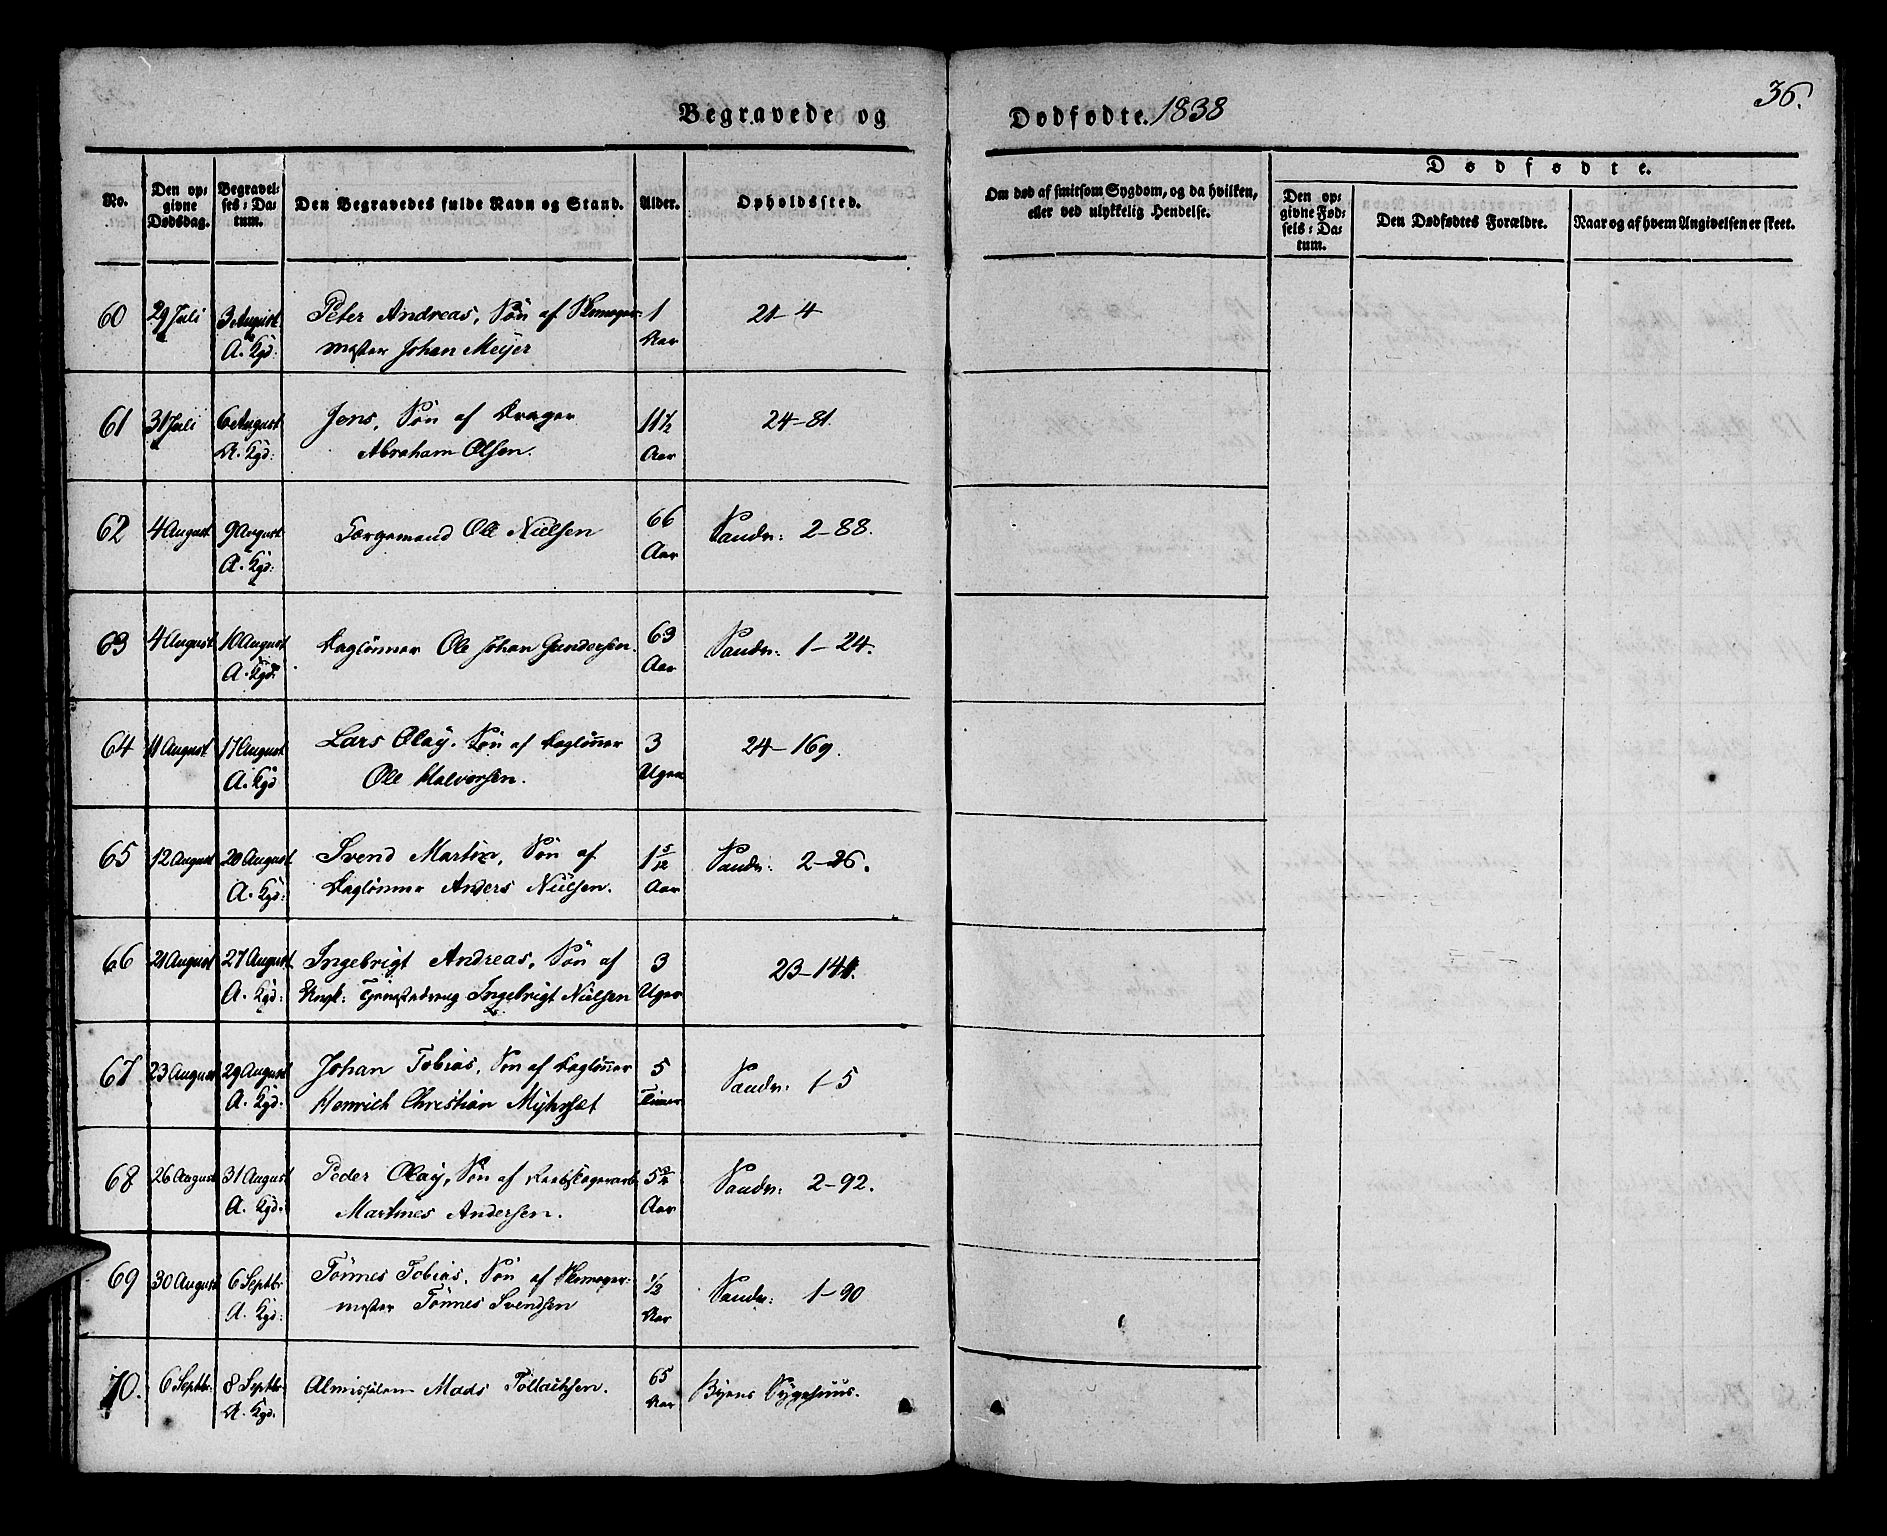 Begravede og Dødfødte. 1838
36.
No.
Den op-
givne
Dødsdag.
Begravel-
ses-Da-
tum.
Den Begravedes fulde Navn og Stand.
Alder.
Opholdssted.
Om død af smitsom Sygdom, og da hvilken,
eller ved ulykkelig Hendelse.
Dødfødte.
Den op-
givne Fød-
sels-Da-
tum.
Den Dødfødtes Forældre.
Naar og af hvem Angivelsen er skeet.
60 29 Juli 3 August Peter Andreas, Søn af Skomager- 1 21-4
A. Kgd: mester Johan Meyer Aar
61 31 Juli 6 August Jens, Søn af Drager 11½ 24-81.
A. Kgd: Abraham Olsen. Aar
62 4 August 9 August Færgemand Ole Nielsen 66 Sandv: 2-88.
A. Kgd: Aar
63 4 August 10 August Daglønner Ole Johan Gundersen. 63 Sandv: 1-24.
A. Kgd: Aar
64 11 August 17 August Lars Olay, Søn af Daglønner 3 24-169.
A. Kgd Ole Halvorsen. Uger
65 12 August 20 August Svend Martin, Søn af 1 5/12 Sandv: 2-26.
A. Kgd: Daglønner Anders Nielsen. Aar
66 21 August 27 August Ingebrigt Andreas, Søn af 3 23-141.
A. Kgd: Ungk: Ingebrigt Nielsen Uger
67 23 August 29 August Johan Tobias, Søn af Daglønner 5 Sandv: 1-5
A. Kgd. Henrich Christian Myhrset Timer
68 26 August 31 August Peder Olay, Søn af 5¾ Sandv: 2-92.
A. Kgd. Martines Andersen. Aar
69 30 August 6 Septbr Tönnes Tobias, Søn af Skomager- ½ Sandv: 1-90
A. Kgd: mester Tönnes Svendsen Aar
70. 6 Septbr. 8 Septbr Almisselem Mads Tollachsen. 65 Byens Sygehuus.
A. Kgd. Aar